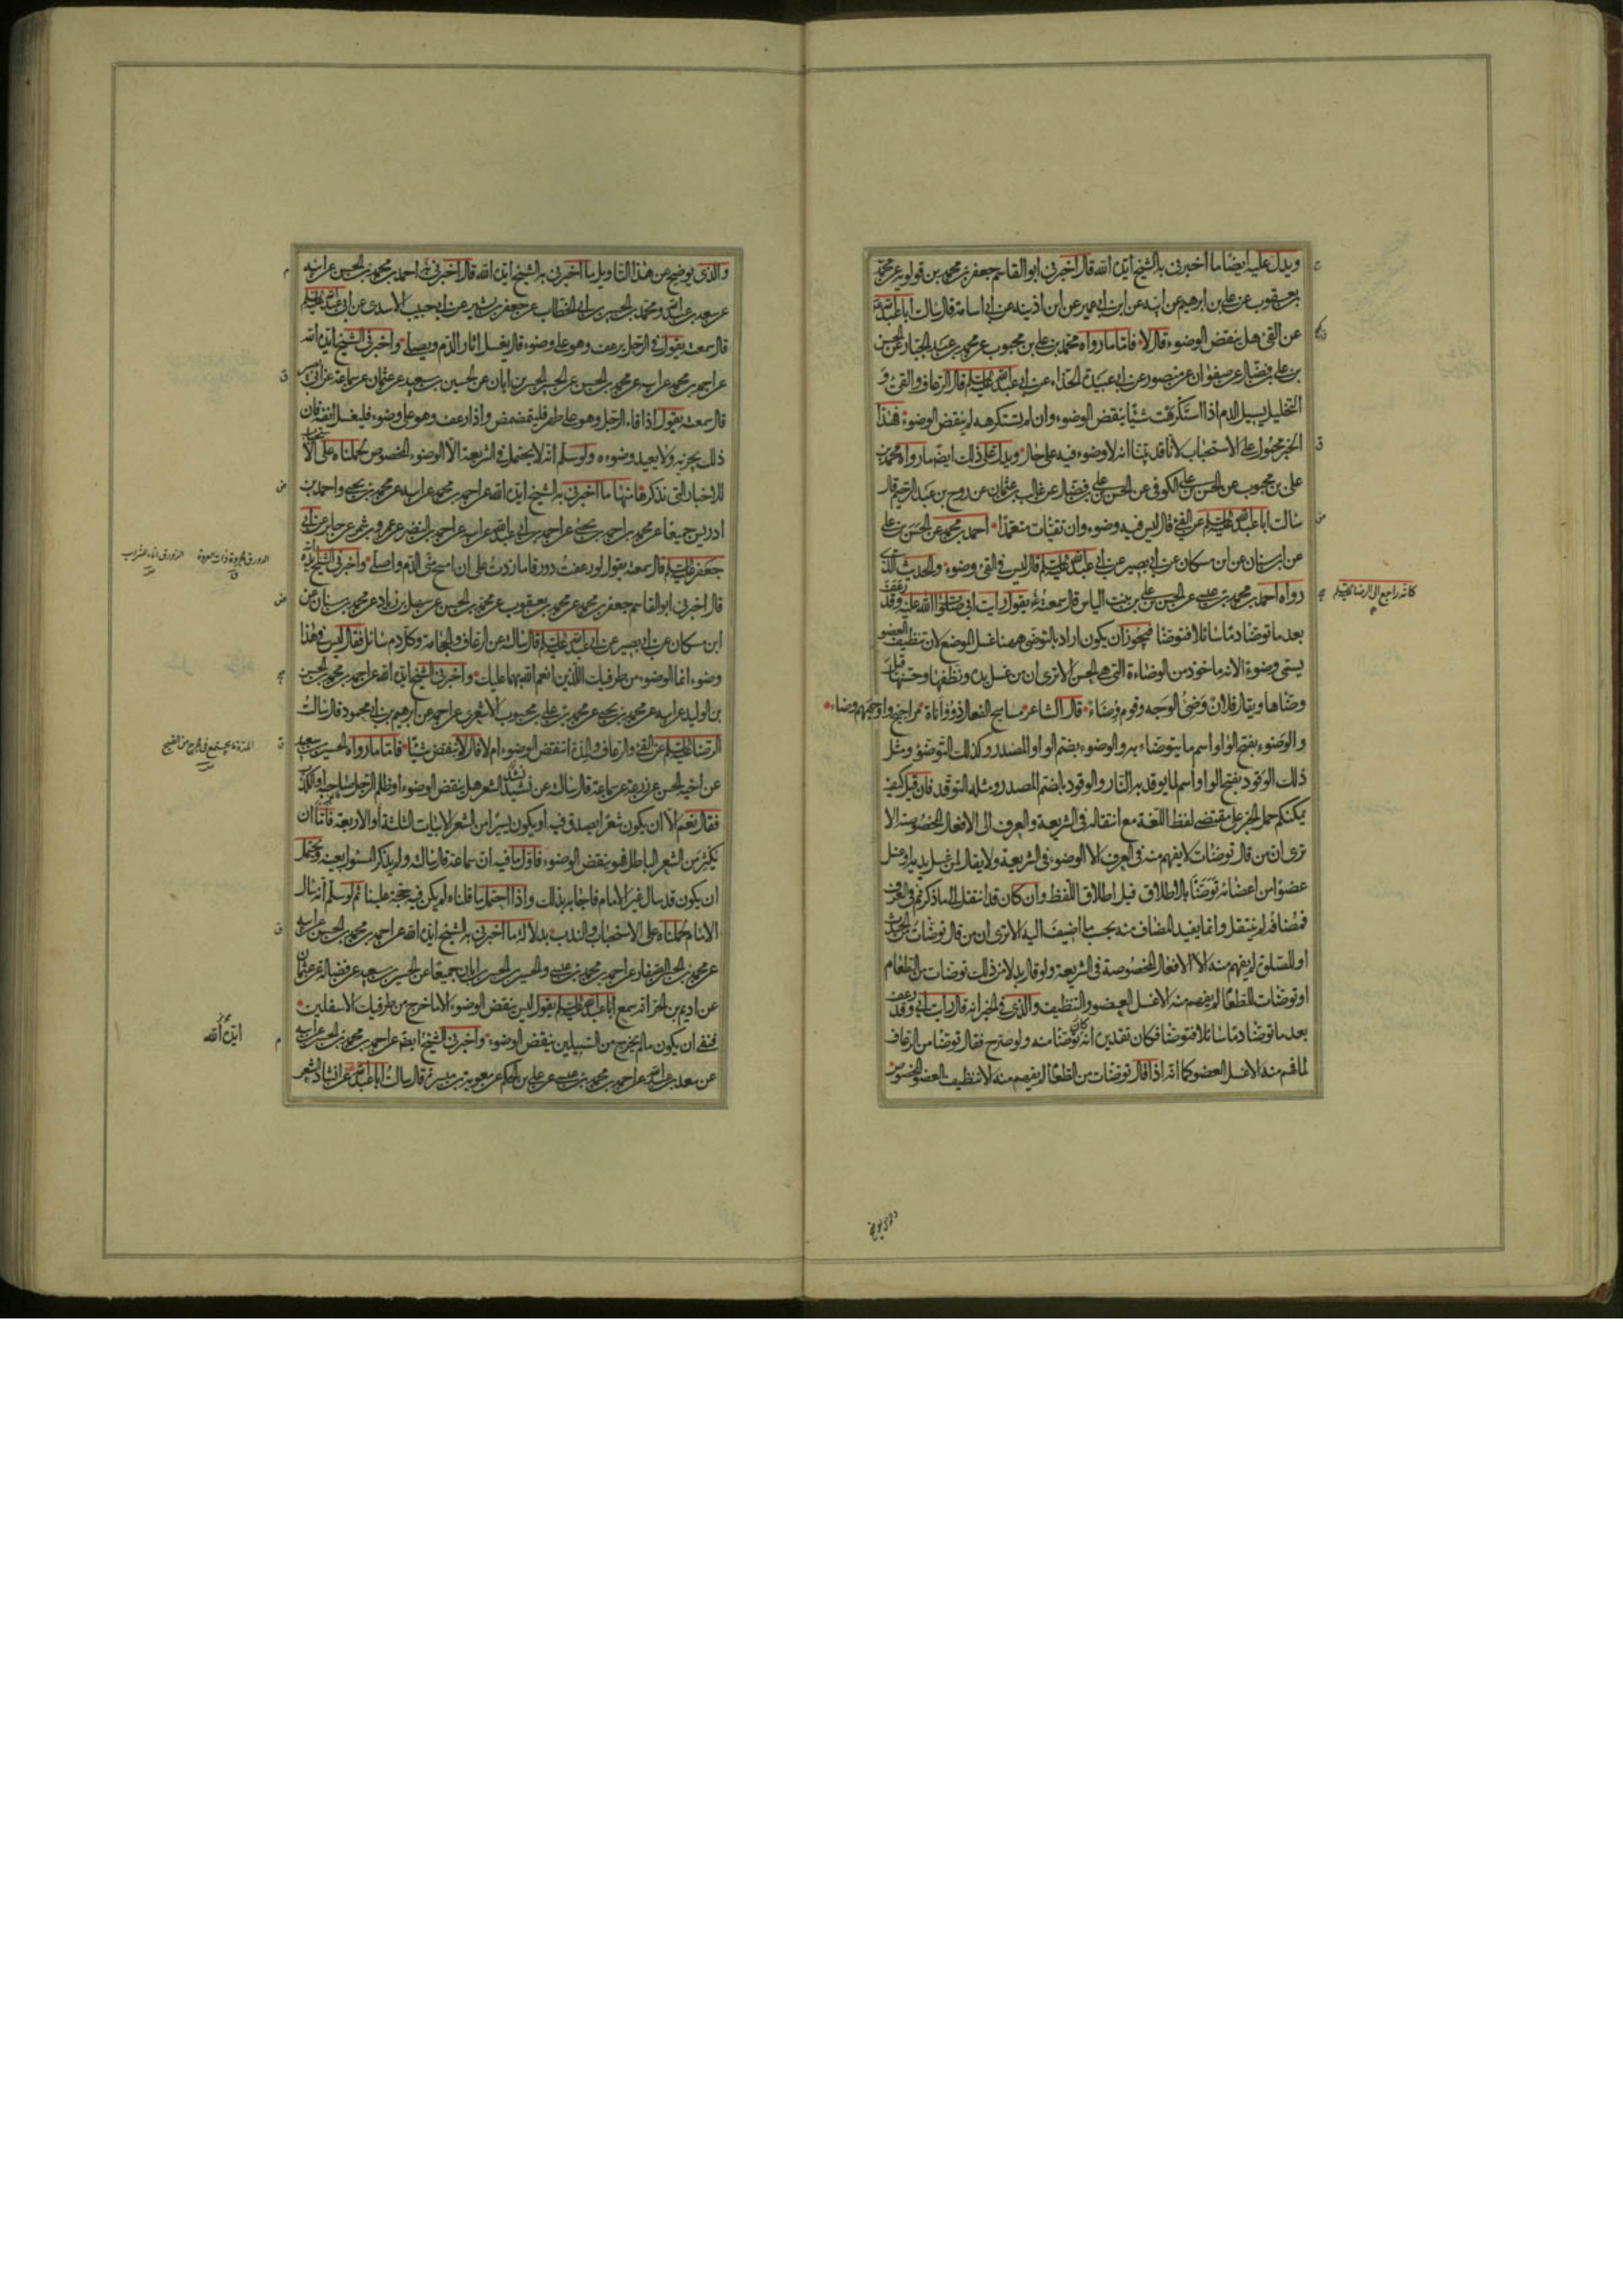 ويدل عليه ايضا ما اخبرني به الشيخ ايده الله قال اخبرني ابو القاسم جعفر بن محمد بن قولويه عن محمد
بن يعقوب عن علي بن ابرهيم عن ابيه عن ابن ابي عمير عن ابن اذينه عن ابي اسامة قال سالت ابا عبد الله ع
عن القئ هل ينقض الوضوء قال لا فاما ما رواه محمد بن علي بن محبوب عن محمد بن عبد الجبار عن الحسن
بن علي بن فضال عن صفوان عن منصور عن ابي عبيدة الحذاء عن ابي عبد الله عليه السلم قال الرعاف والقئ و
التخليل يسيل الدم اذا استكرهت شيئا ينقض الوضوء وان لم تستكرهه لم ينقض الوضوء فهذا
الخبر محمول على الاستحباب لانا قد بينا انه لا وضوء فيه على حال ويدل على ذلك ايضا ما رواه محمد بن
علي بن محبوب عن الحسن بن علي الكوفي عن الحسن بن علي بن فضال عن غالب بن عثمان عن روح بن عبد الرحيم قال
سالت ابا عبد الله عليه السلم عن القئ قال ليس فيه وضوء وان تقيات متعمدا احمد بن محمد عن الحسن بن علي
عن ابن سنان عن ابن مسكان عن ابي بصير عن ابي عبد الله عليه السلم قال ليس في القئ وضوء والحديث الذي
رواه احمد بن محمد بن عيسى عن الحسن بن علي بن بنت الياس قال سمعته يقول رايت ابي صلوات الله عليه وقد رعف
كانه راجع الى الرضا عليه السلم
بعد ما توضا دما سائلا فتوضا فيجوز ان يكون اراد بالتوضي ههنا غسل الموضع لان تنظيف العضو
يسمى وضوءا لانه ماخوذ من الوضاءة التي هي الحسن الا ترى ان من غسل يده ونظفها وحسنها قيل
وضاها ويقال فلان وضئ الوجه وقوم وضاء قال الشاعر مساميح الفعال ذووا اناة مراجيح واوجههم وضاء
والوضوء بفتح الواو اسم ما يتوضاء به والوضوء بضم الواو المصدر وكذلك التوضؤ ومثل
ذلك الوقود بفتح الواو اسم لما يوقد به النار والوقود بالضم المصدر ومثله التوقد فان قيل كيف
يمكنكم حمل الخبر على مقتضى لفظ اللغة مع انتقاله في الشريعة والعرف الى الافعال المخصوصة الا
ترى ان من قال توضات لا يفهم منه في العرف الا الوضوء في الشريعة ولا يقال لمن غسل يديه او غسل
عضوا من اعضائه توضا بالاطلاق قيل اطلاق اللفظ وان كان قد انتقل الى ما ذكرتم في العرف
فمضافه لم ينتقل وانما يفيد المضاف منه بحسب ما اضيف اليه الا ترى ان من قال توضات من الحدث
او للصلوة لم يفهم منه الا الافعال المخصوصة في الشريعة ولو قال بدلا من ذلك توضات من الطعام
او توضات للطعام لم يفهم منه الا غسل العضو والتنظيف والذي في الخبر انه قال رايت ابي وقد رعف
بعد ما توضا دما سائلا فتوضا فكان تقديره انه كان توضا منه ولو صرح فقال توضا من الرعاف
لما فهم منه الا غسل العضو كما انه اذا قال توضات من الطعام لم يفهم منه الا تنظيف العضو المخصوص
والذي يوضح
والذي يوضح عن هذا التاويل ما اخبرني به الشيخ ايده الله قال اخبرني احمد بن محمد بن الحسن عن ابيه
عن سعد بن عبد الله ومحمد بن الحسن بن ابي الخطاب عن جعفر بن بشير عن ابي حبيب الاسدي عن ابي عبد الله عليه السلم
قال سمعته يقول في الرجل يرعف وهو على وضوء قال يغسل اثار الدم ويصلي واخبرني الشيخ ايده الله
عن احمد بن محمد عن ابيه عن محمد بن الحسن عن الحسين بن الحسن بن ابان عن الحسين بن سعيد عن عثمان عن سماعة عن ابي بصير
قال سمعته يقول اذا قاء الرجل وهو على طهر فليتمضمض واذا رعف وهو على وضوء فليغسل انفه فان
ذلك يجزيه ولا يعيد وضوءه ولو سلم انه لا يحتمل في الشريعة الا الوضوء المخصوص لحملناه على الاستحباب
للاخبار التي نذكرها منها ما اخبرني به الشيخ ايده الله عن احمد بن محمد عن ابيه عن محمد بن يحيى واحمد بن
ادريس جميعا عن محمد بن احمد بن يحيى عن احمد بن ابي عبد الله عن ابيه عن احمد بن النضر عن عمرو بن شمر عن جابر عن ابي
جعفر عليه السلم قال سمعته يقول لو رعفت دورقا ما زدت على ان امسح مني الدم واصلي واخبرني الشيخ ايده الله
الدورق الجرة ذات العروة الدورق اناء للشراب
قال اخبرني ابو القاسم جعفر بن محمد عن محمد بن يعقوب عن محمد بن الحسن عن سهل بن زياد عن محمد بن سنان عن
ابن مسكان عن ابي بصير عن ابي عبد الله عليه السلم قال سالته عن الرعاف والحجامة وكل دم سائل فقال ليس في هذا
وضوء انما الوضوء من طرفيك اللذين انعم الله بهما عليك واخبرني الشيخ ايده الله عن احمد بن محمد بن الحسن
بن الوليد عن ابيه عن محمد بن يحيى عن محمد بن علي بن محبوب الاشعري عن احمد عن ابرهيم بن ابي محمود قال سالت
الرضا عليه السلم عن القئ والرعاف والمدة اتنقض الوضوء ام لا قال لا تنقض شيئا فاما ما رواه الحسين بن سعيد
المدة ما يجتمع في الجرح من القيح
عن اخيه الحسن عن زرعة عن سماعة قال سالته عن نشيد الشعر هل ينقض الوضوء او ظلم الرجل صاحبه او الكذب
فقال نعم الا ان يكون شعرا يصدق فيه او يكون يسيرا من الشعر الابيات الثلثة او الاربعة فاما ان
يكثر من الشعر الباطل فهو ينقض الوضوء فاول ما فيه ان سماعة قال سالته ولم يذكر المسئول بعينه ويحتمل
ان يكون قد سال غير الامام فاجابه بذلك واذا احتمل ما قلناه لم يكن فيه حجة علينا ثم لو سلم انه سال
الامام لحملناه على الاستحباب والندب بدلالة ما اخبرني به الشيخ ايده الله عن احمد بن محمد بن الحسن عن ابيه
عن محمد بن الحسن الصفار عن احمد بن محمد بن عيسى والحسين بن الحسن بن ابان جميعا عن الحسين بن سعيد عن فضالة عن عثمان
عن اديم بن الحر انه سمع ابا عبد الله عليه السلم يقول ليس ينقض الوضوء الا ما خرج من طرفيك الاسفلين
فنفى ان يكون ما لم يخرج من السبيلين ينقض الوضوء واخبرني الشيخ ايضا عن احمد بن محمد بن الحسن عن ابيه
ايده الله
عن سعد بن عبد الله عن احمد بن محمد بن عيسى عن علي بن الحكم عن معوية بن ميسرة قال سالت ابا عبد الله عن انشاد الشعر